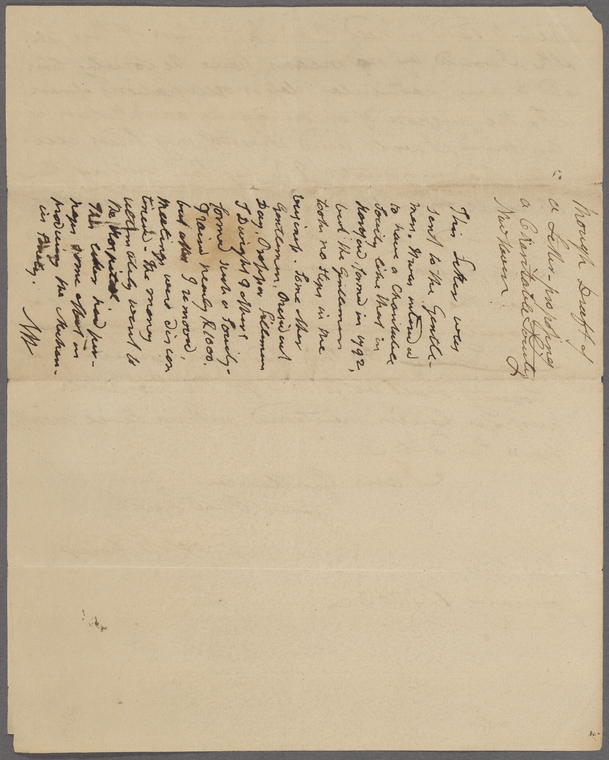 Rough Draft of
a Letter proposing
a Charitable Society
New haven
This Letter was
sent to the Gentle-
men. It was intended
to have a Charitable
Society like that in
Hartford, formed in 1792,
but the Gentlemen
took no steps in the
business. Some other
Gentlemen, President
Day, Professor Silliman
T Dwight & others,
formed such a Society,
& raised nearly $1000.
but after I removed,
meetings were discon
tinued. The money
ultimately went to
the Hospital.
This letter had per-
haps some effect in
producing the
in Society.
NW